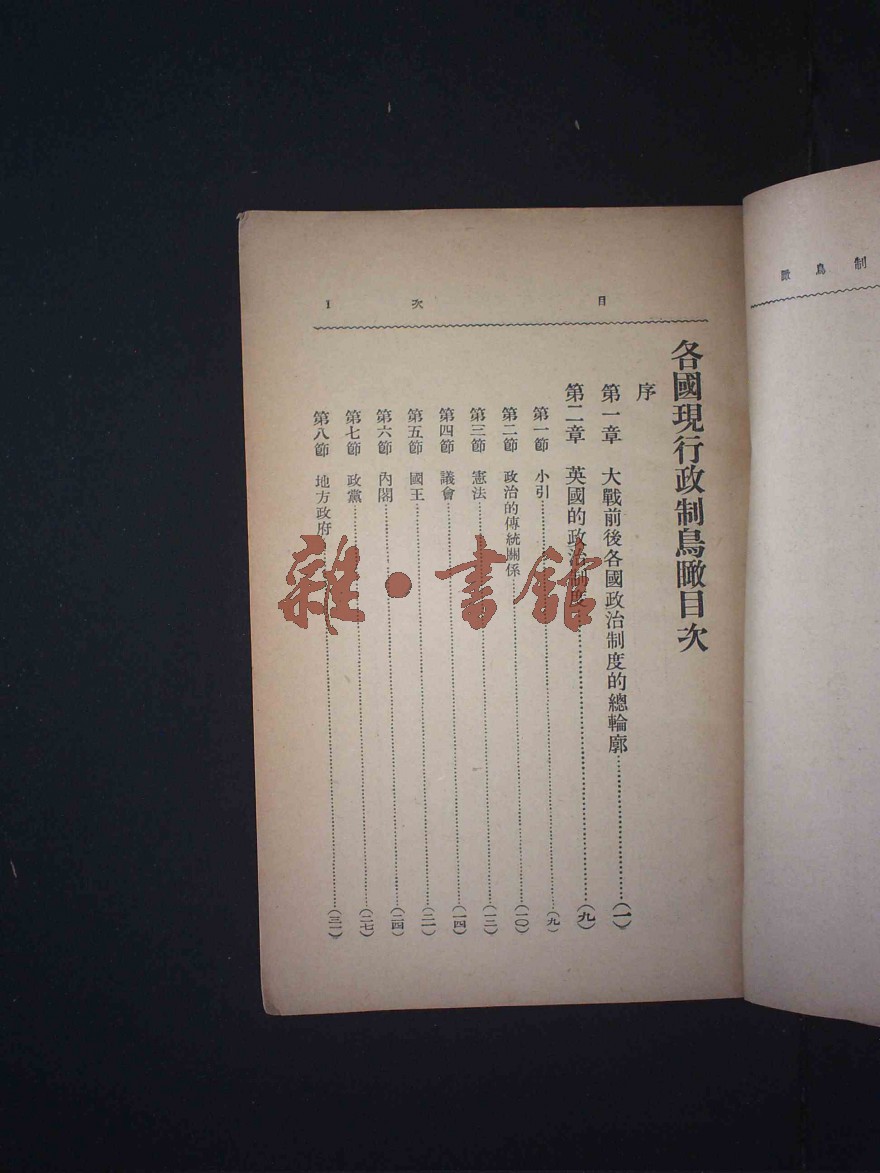 目次 1
各國現行政制鳥瞰目次
序
第一章 大戰前後各國政治制度的總輪廓……(一)
第二章 英國的政治制度……(九)
第一節 小引……(九)
第二節 政治的傳統關係……(一〇)
第三節 憲法……(一三)
第四節 議會……(一四)
第五節 國王……(二一)
第六節 內閣……(二四)
第七節 政黨……(二七)
第八節 地方政府……(三一)
制鳥瞰
雜·書館